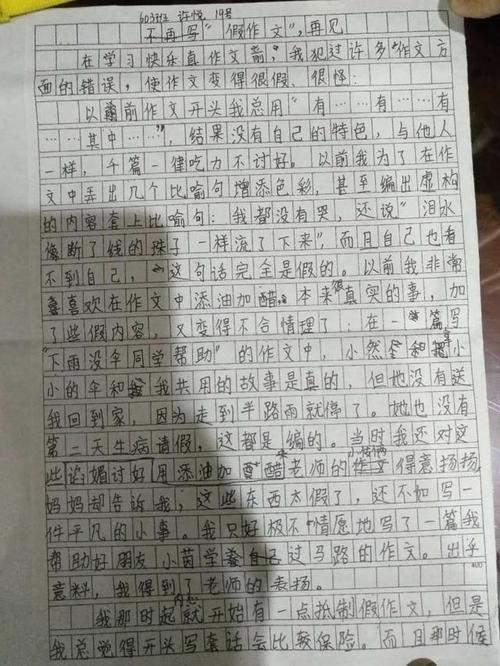 603班 许悦 19号
不再写“假作文”,再见
在学习快乐真作文前,我犯过许多作文方
面的错误,使作文变得很假、很怪:
以前作文开头我总用“有……有……有
……其中……”,结果没有自己的特色,与他人
一样,千篇一律吃力不讨好。以前我为了在作
文中弄出几个比喻句增添色彩,甚至编出虚构
的内容套上比喻句:我都没有哭,还说“泪水
像断了线的珠子一样流了下来”,而且自己也看
不到自己,这句话完全是假的。以前我非常
喜欢在作文中添油加醋。本来很真实的事,加
了些假内容,又变得不合情理了:在一篇写
“下雨没伞同学帮助”的作文中,小然拿和把小
小的伞和我共用的故事是真的,但她没有送
我回到家,因为走到半路雨就停了。她也没有
第二天生病请假,这都是编的。当时我还对这
些谄媚讨好用添油加醋老师的小伎俩得意扬扬,
妈妈却告诉我,这些东西太假了,还不如写一
件平凡的小事。我只好极不情愿地写了一篇我
帮助好朋友小茵学过马路的作文。出乎
意料,我得到了老师的表扬。
400
我那时起就开始有一点抵制假作文,但是
我总觉得开头写套话会比较保险。而且那时候